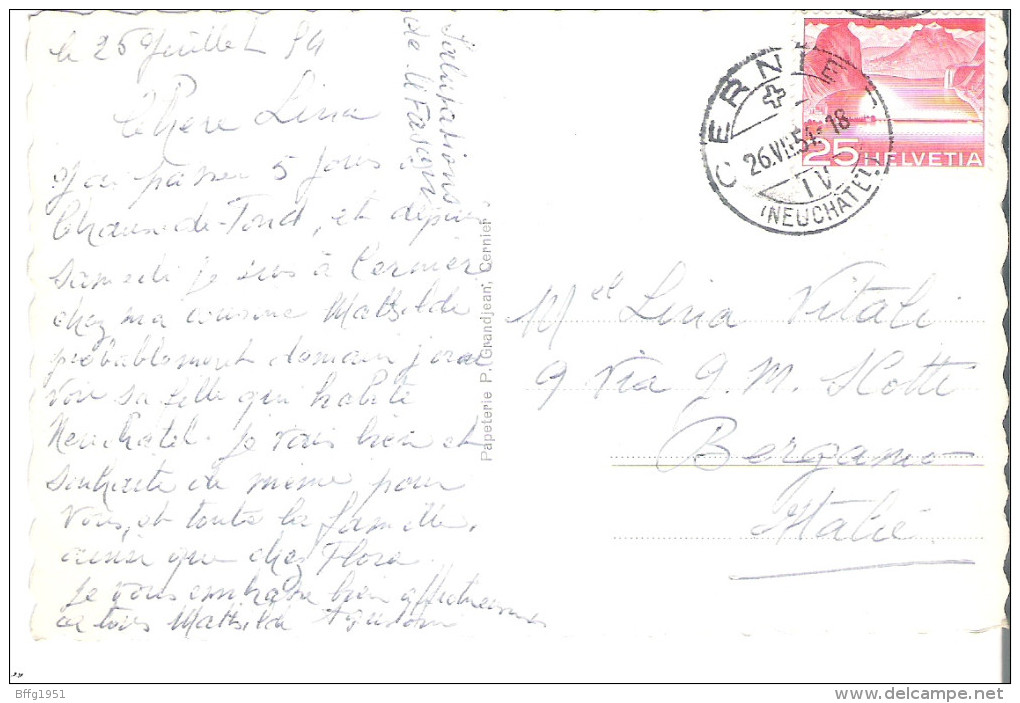 le 25 Juillet 54
Chere Lina
passer 5 jours à
Chaux-de-Fond, et depuis
samedi je suis à Cernier
chez ma cousine Mathilde
probablement demain j'irai
voir sa fille qui habite
Neuchatel. Je vais bien et
souhaite de même pour
vous, et toute la famille,
ainsi que chez Flora.
Je vous embrasse bien
Mathilde
Salutations
de
Papeterie P. Grandjean, Cernier
CERNIER
26.VII.54.-18
IV
(NEUCHÂTEL)
25 HELVETIA
Mel Lina Vitali
9 Via G. M. Scotti
Bergamo
Italie
Bffg1951
www.delcampe.net